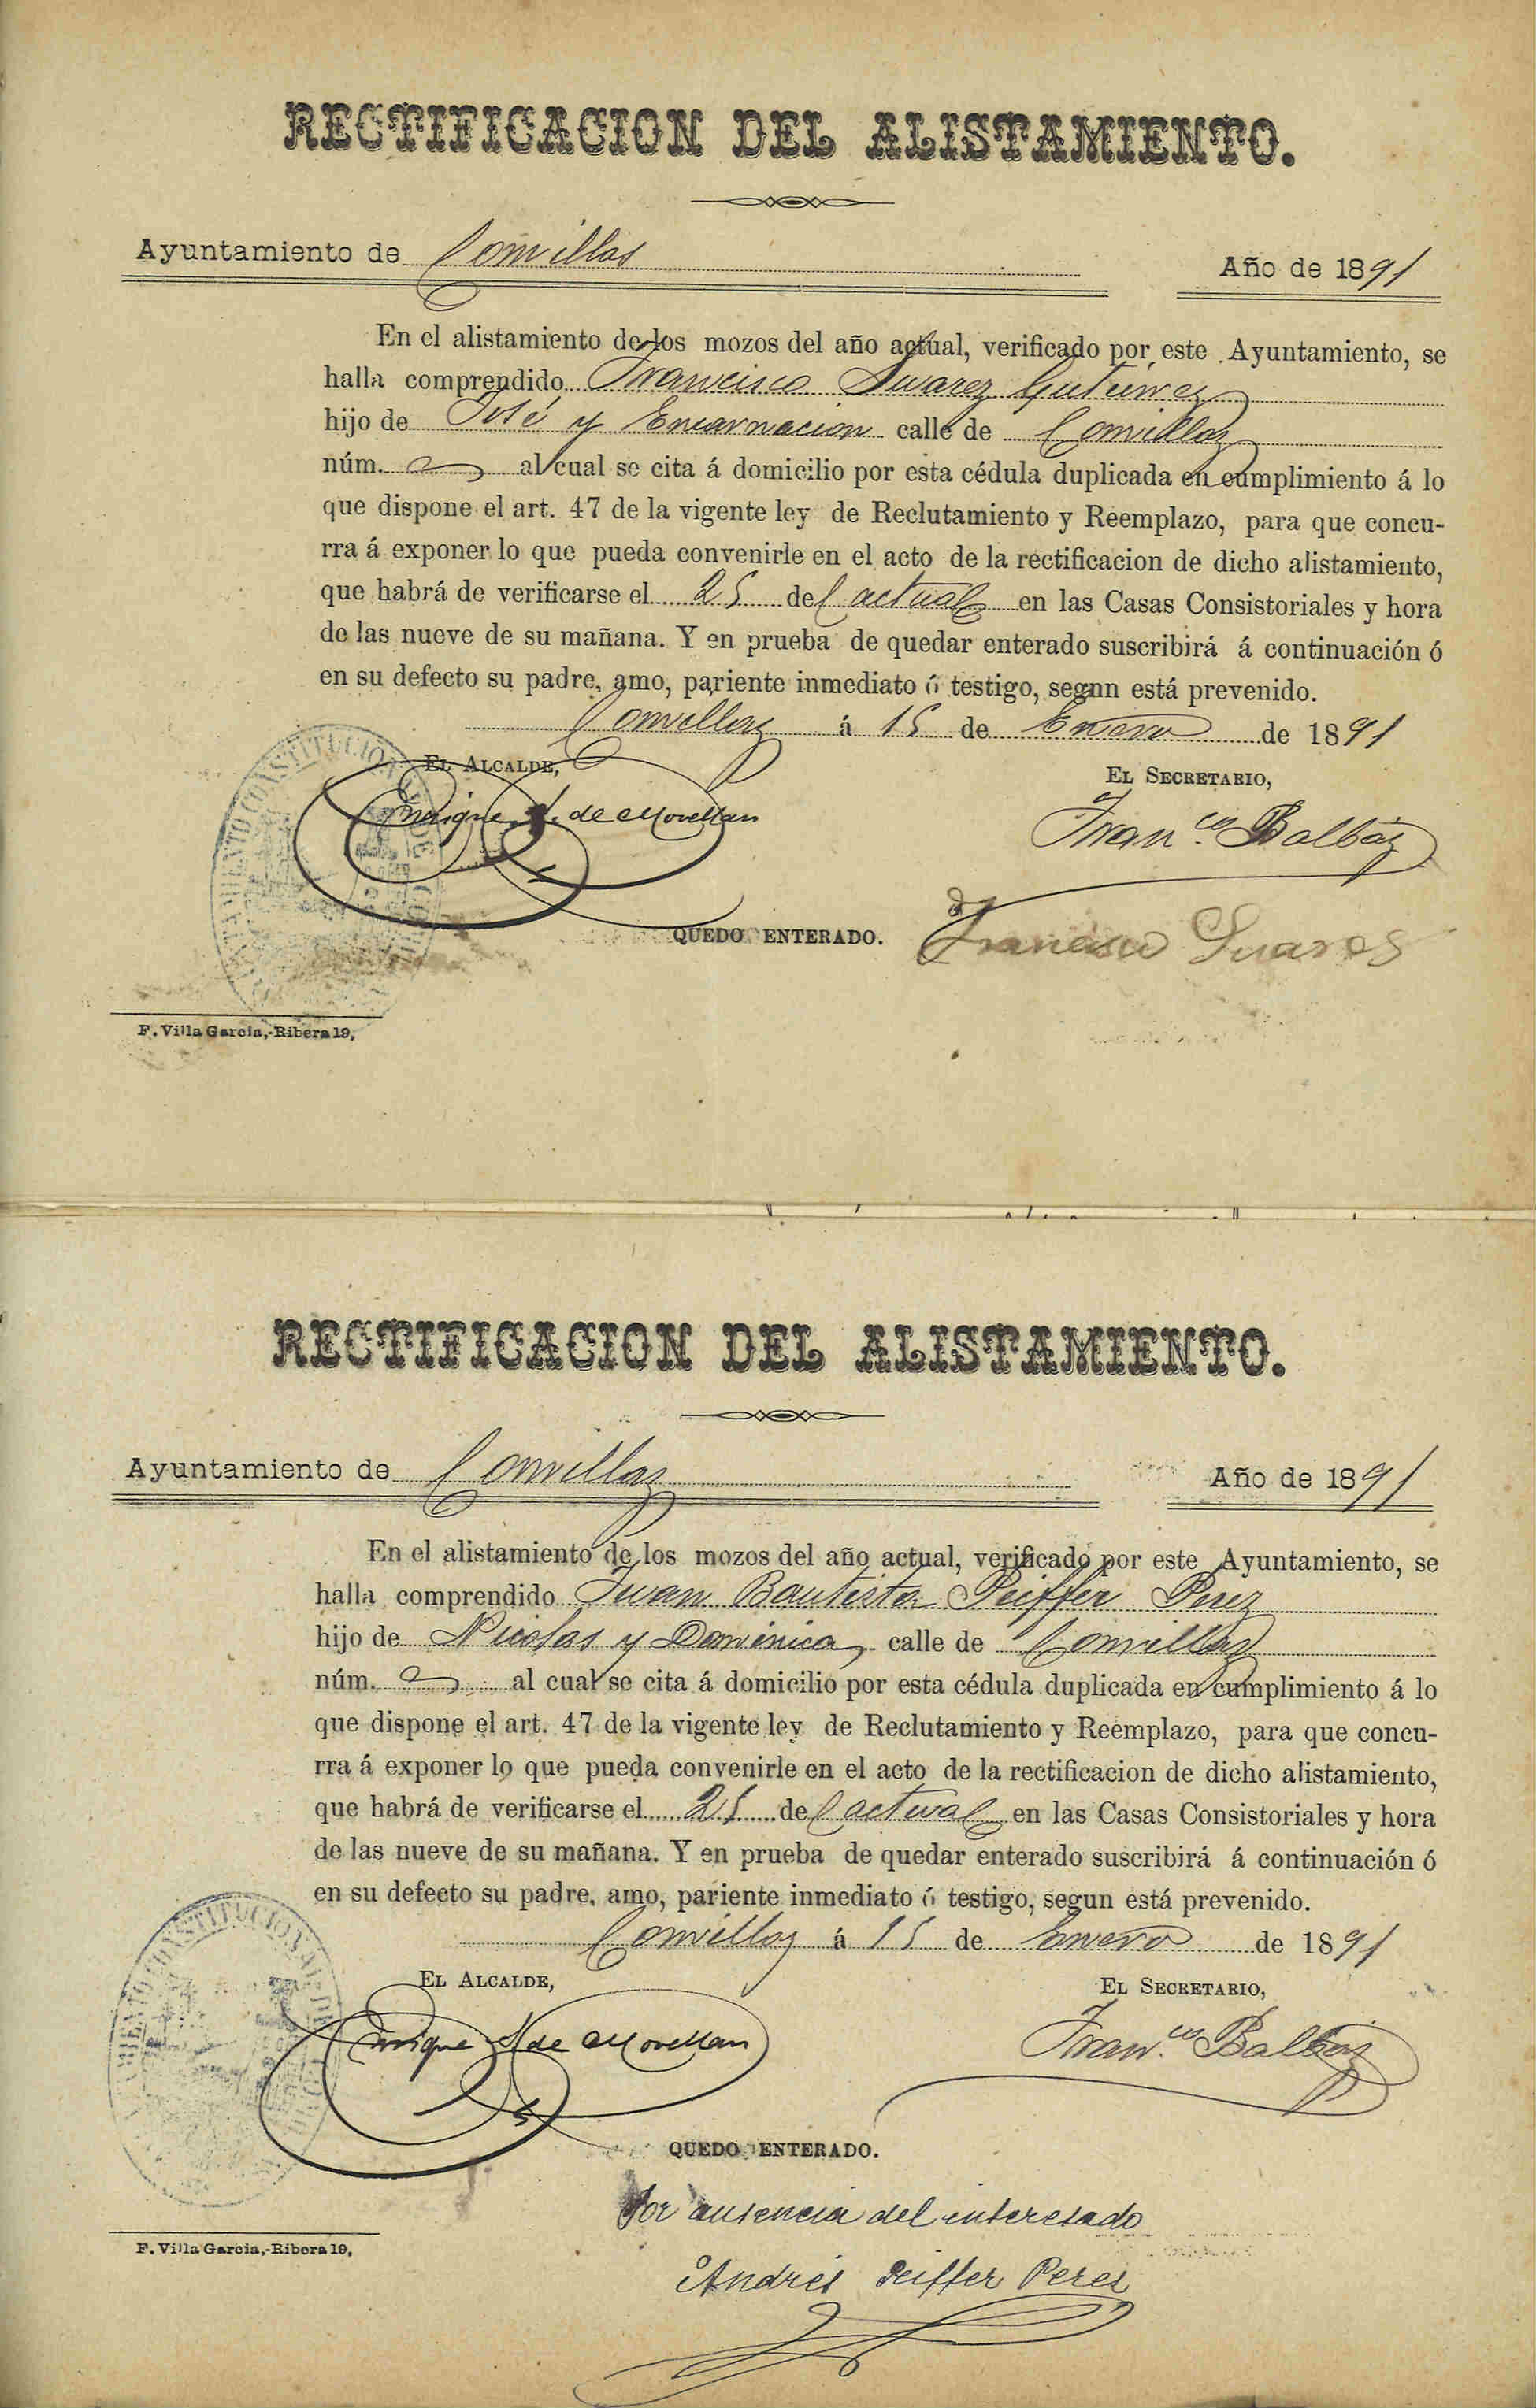 RECTIFICACION DEL ALISTAMIENTO.
Ayuntamiento de Comillas Año de 1891
En el alistamiento de los mozos del año actual, verificado por este Ayuntamiento, se
halla comprendido Francisco Suarez Gutierrez
hijo de José y Encarnacion calle de Comillas
núm. al cual se cita á domicilio por esta cédula duplicada en cumplimiento á lo
que dispone el art. 47 de la vigente ley de Reclutamiento y Reemplazo, para que concu-
rra á exponer lo que pueda convenirle en el acto de la rectificacion de dicho alistamiento,
que habrá de verificarse el 25 del actual en las Casas Consistoriales y hora
de las nueve de su mañana. Y en prueba de quedar enterado suscribirá á continuación ó
en su defecto su padre, amo, pariente inmediato ó testigo, segnn está prevenido.
Comillas á 15 de Enero de 1891
EL ALCALDE,
EL SECRETARIO,
Enrique S. de Movellan
Fran.co Balbás
QUEDO ENTERADO.
Francisco Suares
F. Villa Garcia,-Ribera 19,
RECTIFICACION DEL ALISTAMIENTO.
Ayuntamiento de Comillas Año de 1891
En el alistamiento de los mozos del año actual, verificado por este Ayuntamiento, se
halla comprendido Juan Bautista Peiffer Perez
hijo de Nicolas y Domenica calle de Comillas
núm. al cual se cita á domicilio por esta cédula duplicada en cumplimiento á lo
que dispone el art. 47 de la vigente ley de Reclutamiento y Reemplazo, para que concu-
rra á exponer lo que pueda convenirle en el acto de la rectificacion de dicho alistamiento,
que habrá de verificarse el 25 del actual en las Casas Consistoriales y hora
de las nueve de su mañana. Y en prueba de quedar enterado suscribirá á continuación ó
en su defecto su padre, amo, pariente inmediato ó testigo, segun está prevenido.
Comillas á 15 de Enero de 1891
EL ALCALDE,
EL SECRETARIO,
Enrique S. de Movellan
Fran.co Balbás
QUEDO ENTERADO.
Por ausencia del interesado
Andrés Peiffer Peres
F. Villa Garcia,-Ribera 19,